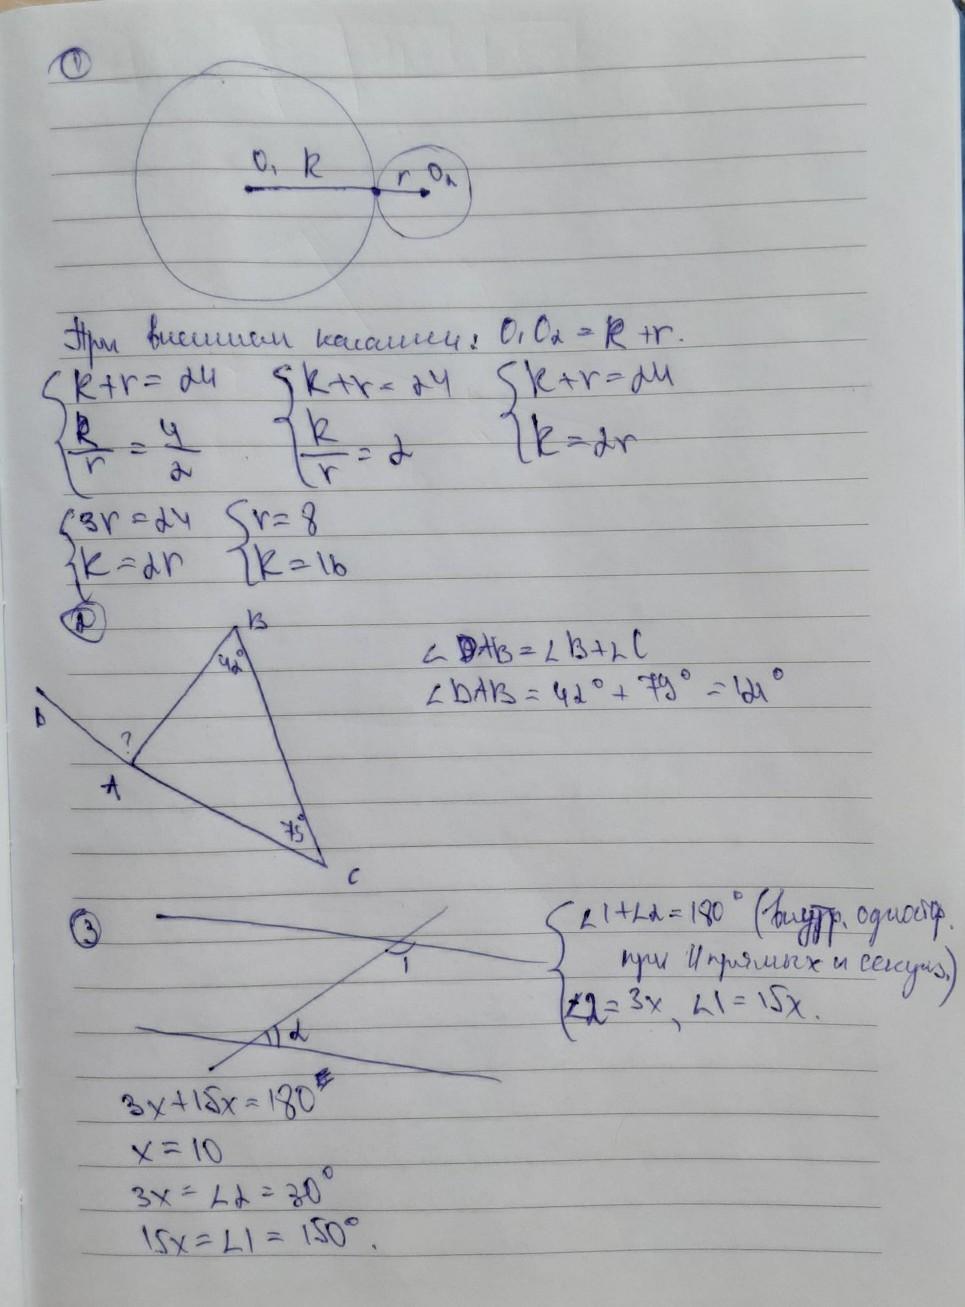 1
O₁ R r O₂
При внешнем касании: O₁O₂ = R + r.
{ R + r = 24 { R + r = 24 { R + r = 24
R/r = 4/2 R/r = 2 R = 2r
{ 3r = 24 { r = 8
R = 2r R = 16
2
B
42°
∠DAB = ∠B + ∠C
∠DAB = 42° + 79° = 121°
D
?
A
79°
C
3
{ ∠1 + ∠2 = 180° (внутр. одностор.
при || прямых и секущ.)
∠2 = 3x, ∠1 = 15x.
1
2
3x + 15x = 180
x = 10
3x = ∠2 = 30°
15x = ∠1 = 150°.